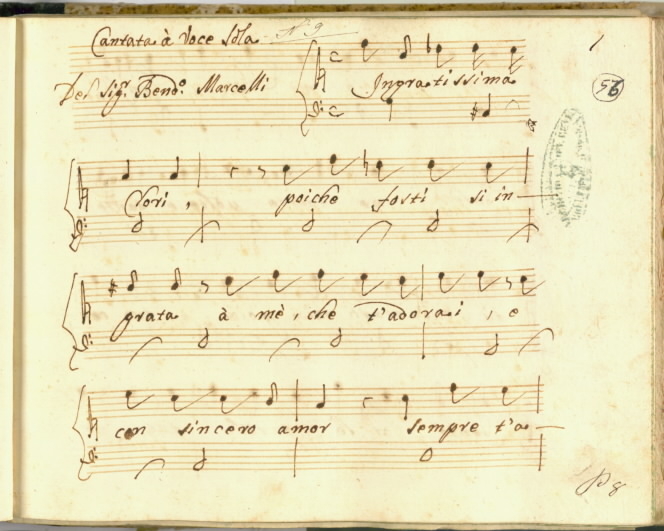 Cantata à Voce Sola N 9
1
56
Del Sigr. Bendo. Marcelli
Ingratissima
Clori, poiche fosti si in-
grata à mè, che t'adorai, e
con sincero amor sempre t'a-